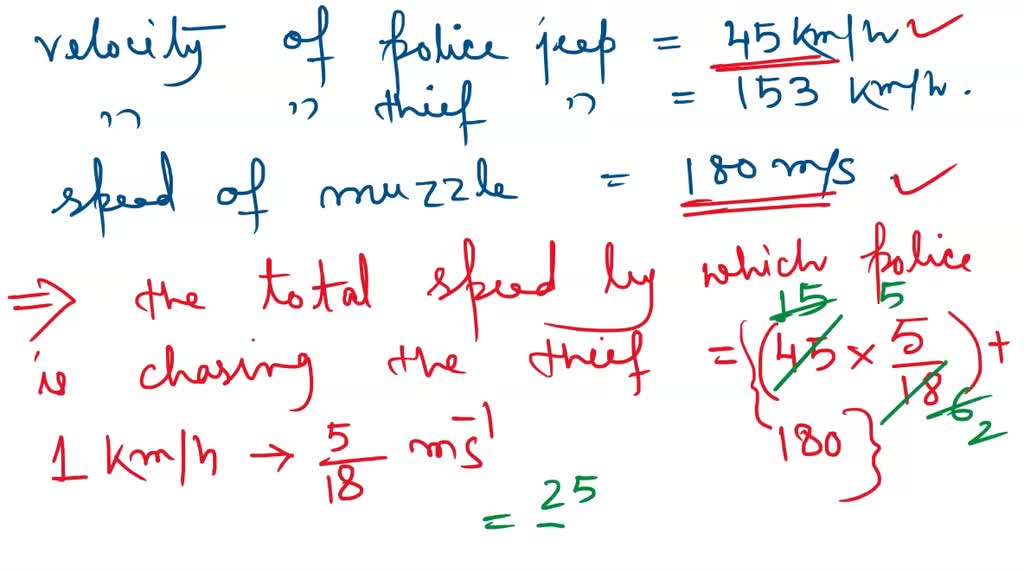 velocity of police jeep = 45 km/h ✓
" " thief " = 153 km/h.
speed of muzzle = 180 m/s ✓
⇒ the total speed by which police
15 5
is chasing the thief = {(45 × 5/18) +
6 2
1 km/h → 5/18 ms⁻¹ 180}
= 25